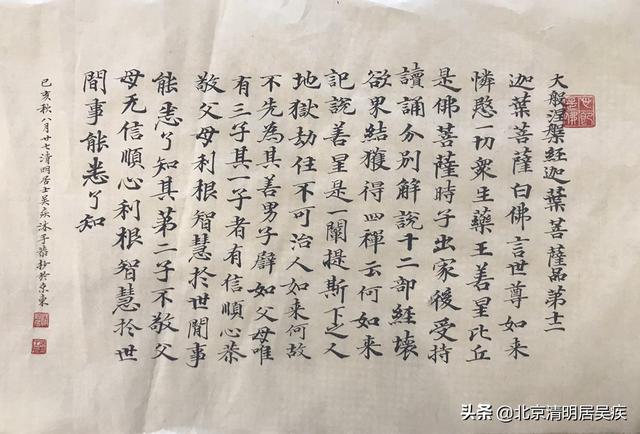 大般涅槃経迦葉菩薩品第十二
迦葉菩薩白佛言世尊如来
憐愍一切衆生藥王善星比丘
是佛菩薩時子出家後受持
讀誦分别解説十二部経壞
欲界結獲得四禪云何如来
記説善星是一闡提斯下之人
地獄劫住不可治人如来何故
不先為其善男子譬如父母唯
有三子其一子者有信順心恭
敬父母利根智慧於世間事
能悉了知其第二子不敬父
母无信順心利根智慧於世
間事能悉了知
己亥秋八月廿七清明居士吴疾沐手恭抄於京東
头条 @北京清明居吴疾